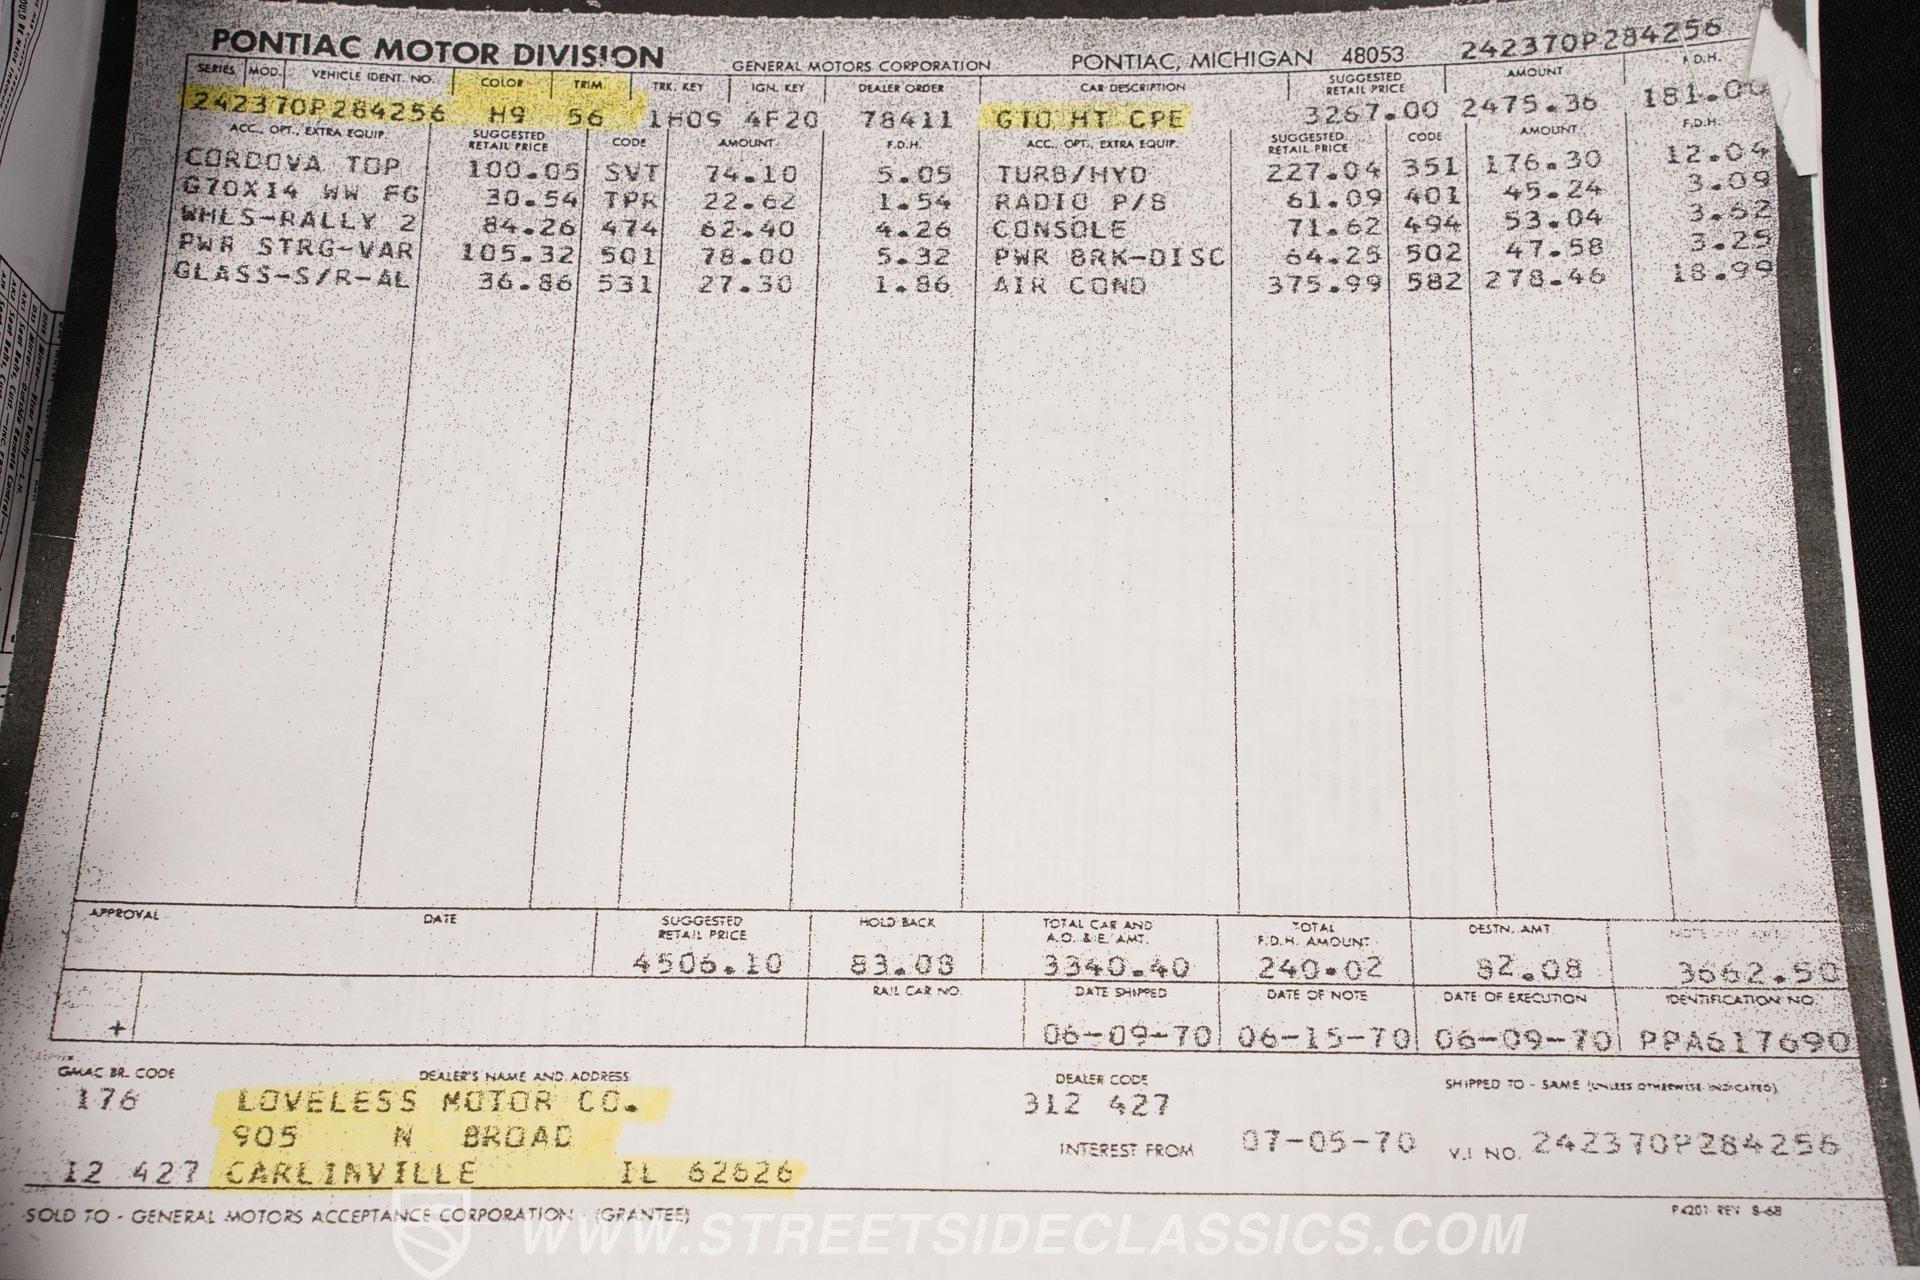 PONTIAC MOTOR DIVISION GENERAL MOTORS CORPORATION PONTIAC, MICHIGAN 48053 242370P284256
SERIES MOD. VEHICLE IDENT. NO. COLOR TRIM TRK. KEY IGN. KEY DEALER ORDER CAR DESCRIPTION SUGGESTED RETAIL PRICE AMOUNT F.D.H.
242370P284256 H9 56 1H09 4F20 78411 GTO HT CPE 3267.00 2475.36 181.00
ACC., OPT., EXTRA EQUIP. SUGGESTED RETAIL PRICE CODE AMOUNT F.D.H. ACC., OPT., EXTRA EQUIP. SUGGESTED RETAIL PRICE CODE AMOUNT F.D.H.
CORDOVA TOP 100.05 SVT 74.10 5.05 TURB/HYD 227.04 351 176.30 12.04
G70X14 WW FG 30.54 TPR 22.62 1.54 RADIO P/B 61.09 401 45.24 3.09
WHLS-RALLY 2 84.26 474 62.40 4.26 CONSOLE 71.62 494 53.04 3.62
PWR STRG-VAR 105.32 501 78.00 5.32 PWR BRK-DISC 64.25 502 47.58 3.25
GLASS-S/R-AL 36.86 531 27.30 1.86 AIR COND 375.99 582 278.46 18.99
APPROVAL DATE SUGGESTED RETAIL PRICE HOLD BACK TOTAL CAR AND A.O. & E. AMT. TOTAL F.D.H. AMOUNT DESTN. AMT.
4506.10 83.08 3340.40 240.02 82.08 3662.50
RAIL CAR NO. DATE SHIPPED DATE OF NOTE DATE OF EXECUTION IDENTIFICATION NO.
+ 06-09-70 06-15-70 06-09-70 PPA617690
GMAC BR. CODE DEALER'S NAME AND ADDRESS DEALER CODE SHIPPED TO - SAME (UNLESS OTHERWISE INDICATED)
176 LOVELESS MOTOR CO. 312 427
905 N BROAD INTEREST FROM 07-05-70 V.I NO. 242370P284256
12 427 CARLINVILLE IL 62626
SOLD TO - GENERAL MOTORS ACCEPTANCE CORPORATION - (GRANTEE) P4201 REV 8-68
WWW.STREETSIDECLASSICS.COM